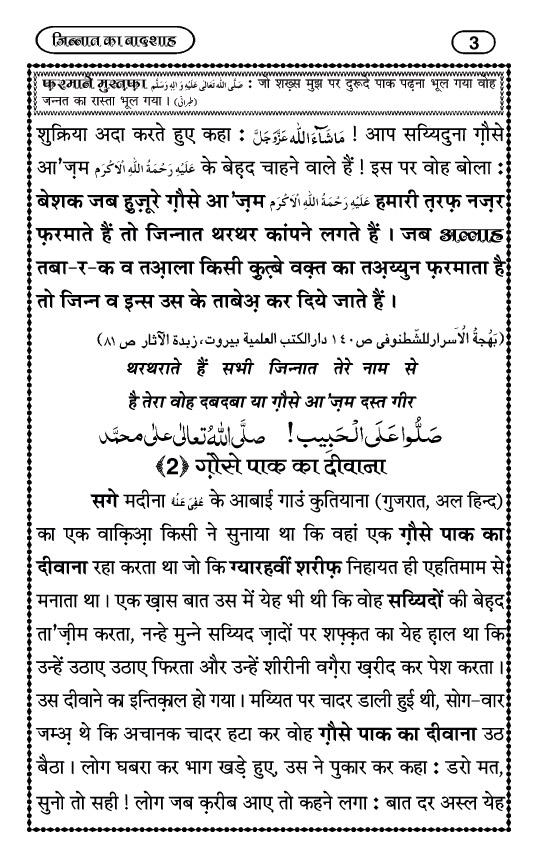 जिन्नात का बादशाह
3
फ़रमाने मुस्तफ़ा صَلَّى اللهُ تَعَالٰى عَلَيْهِ وَاٰلِهٖ وَسَلَّم : जो शख़्स मुझ पर दुरूदे पाक पढ़ना भूल गया वोह
जन्नत का रास्ता भूल गया । (طبرانی)
शुक्रिया अदा करते हुए कहा : مَاشَآءَاللّٰه عَزَّوَجَلَّ ! आप सय्यिदुना ग़ौसे
आ'ज़म عَلَيْهِ رَحْمَةُ اللّٰهِ الْاَكْرَم के बेहद चाहने वाले हैं ! इस पर वोह बोला :
बेशक जब हुज़ूरे ग़ौसे आ'ज़म عَلَيْهِ رَحْمَةُ اللّٰهِ الْاَكْرَم हमारी त़रफ़ नज़र
फ़रमाते हैं तो जिन्नात थरथर कांपने लगते हैं । जब अल्लाह
तबा-र-क व तआ़ला किसी क़ुत़्बे वक़्त का तअ़य्युन फ़रमाता है
तो जिन्न व इन्स उस के ताबेअ़ कर दिये जाते हैं ।
(بَهْجَةُ الْاَسرارللشَّطنوفى ص١٤٠ دارالكتب العلمية بيروت، زبدة الآثار ص ٨١)
थरथराते हैं सभी जिन्नात तेरे नाम से
है तेरा वोह दबदबा या ग़ौसे आ'ज़म दस्त गीर
صَلُّوا عَلَى الْحَبِيب! صلَّى اللهُ تعالى على محمَّد
﴾2﴿ ग़ौसे पाक का दीवाना
सगे मदीना عُفِىَ عَنْهُ के आबाई गाउं कुतियाना (गुजरात, अल हिन्द)
का एक वाक़िआ़ किसी ने सुनाया था कि वहां एक ग़ौसे पाक का
दीवाना रहा करता था जो कि ग्यारहवीं शरीफ़ निहायत ही एहतिमाम से
मनाता था । एक ख़ास बात उस में येह भी थी कि वोह सय्यिदों की बेहद
ता'ज़ीम करता, नन्हे मुन्ने सय्यिद ज़ादों पर शफ़्क़त का येह ह़ाल था कि
उन्हें उठाए उठाए फिरता और उन्हें शीरीनी वग़ैरा ख़रीद कर पेश करता ।
उस दीवाने का इन्तिक़ाल हो गया । मय्यित पर चादर डाली हुई थी, सोग-वार
जम्अ़ थे कि अचानक चादर हटा कर वोह ग़ौसे पाक का दीवाना उठ
बैठा । लोग घबरा कर भाग खड़े हुए, उस ने पुकार कर कहा : डरो मत,
सुनो तो सही ! लोग जब क़रीब आए तो कहने लगा : बात दर अस्ल येह